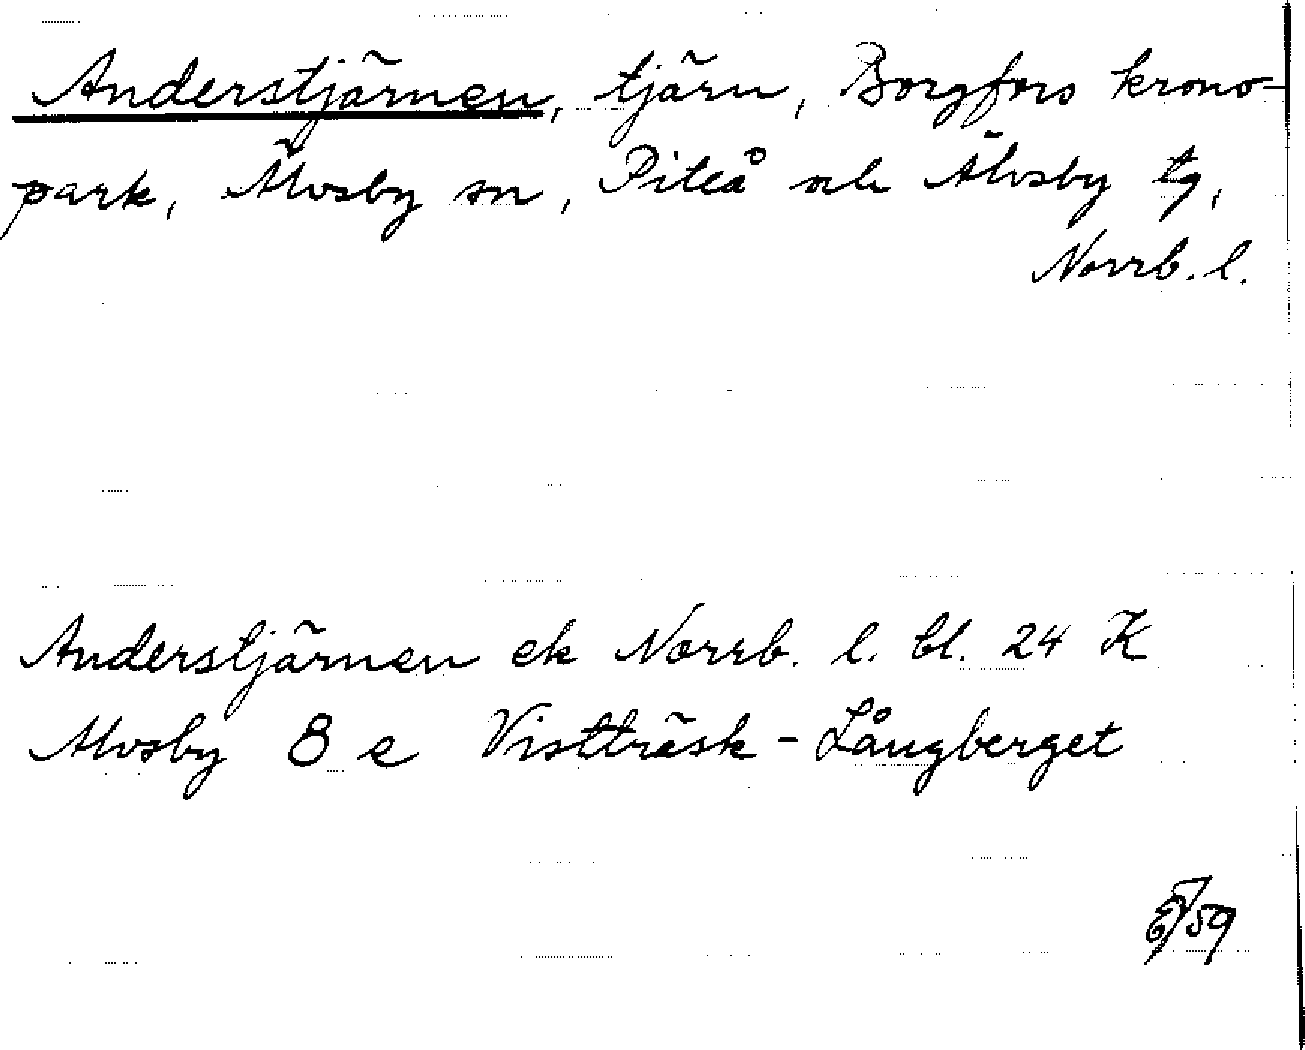 Anderstjärnen, tjärn, Borgfors krono-
park, Älvsby sn, Piteå och Älvsby tg,
Norrb. l.
Anderstjärnen ek Norrb. l. bl. 24 K
Älvsby 8 e Vistträsk - Långberget
/59